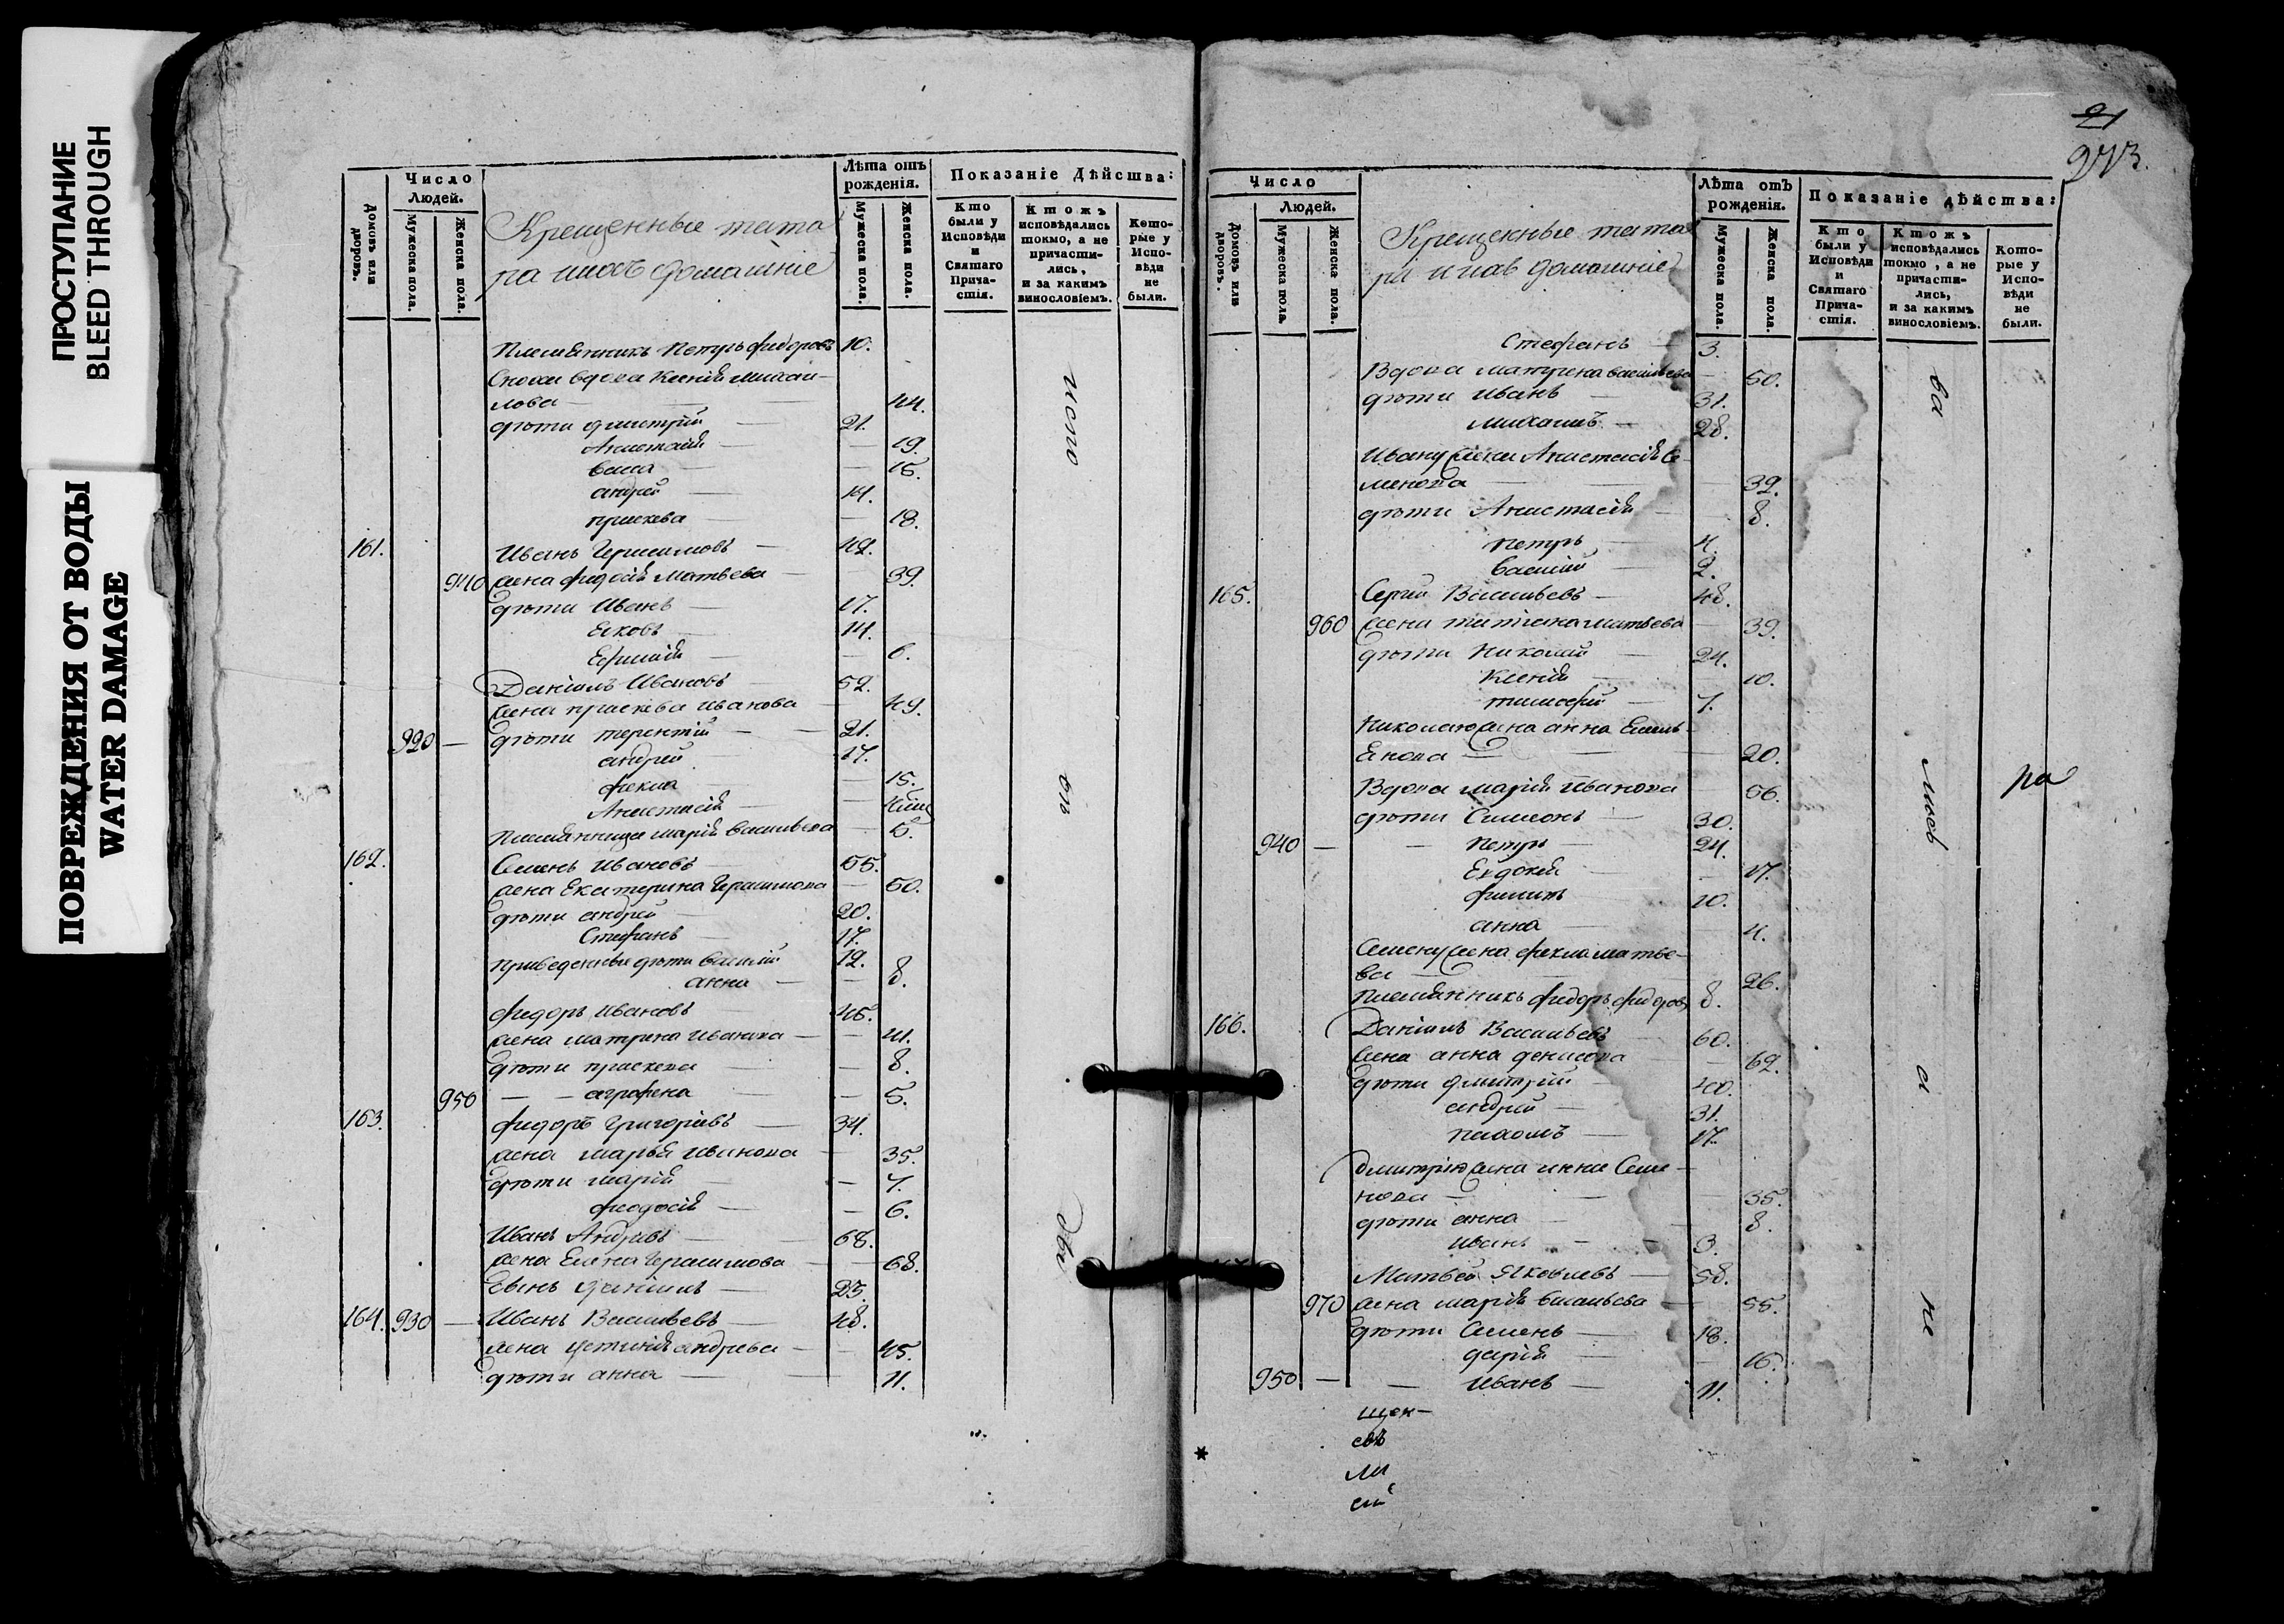 ПРОСТУПАНИЕ
BLEED THROUGH
ПОВРЕЖДЕНИЯ ОТ ВОДЫ
WATER DAMAGE
Число Людей.
Домовъ или дворовъ.
Мужеска пола.
Женска пола.
Крещенные тата
ра иихъ домашніе
Лѣта отъ рожденія.
Мужеска пола.
Женска пола.
Показаніе Дѣйства:
Кто были у Исповѣди и Святаго Прича-стія.
Ктожъ исповѣдались токмо, а не причасти-лись, и за какимъ винословіемъ.
Кото-рые у Испо-вѣди не были.
Племянникъ Петръ Федоровъ 10.
вдова Ксенія Михаи-
лова — 44.
дѣти Дмитрій — 21.
— 19.
— 15.
андрей — 14.
праскева — 18.
161. Иванъ Герасимовъ — 42.
940 жена Федосія Матвева — 39.
дѣти Иванъ — 17.
Яковъ 14.
— 6.
Даніилъ Ивановъ — 52.
жена праскева иванова — 49.
920 — дѣти терентій — 21.
андрей 17.
фекла — 15.
Анастасія —
племянница марія васильева — 5.
162. Семенъ Ивановъ 55.
жена Екатерина Герасимова — 50.
дѣти андрей — 20.
Стефанъ — 17.
приведенные дѣти василій 12.
анна — 8.
федоръ ивановъ — 45.
жена матрена иванова — 41.
дѣти праскева — 8.
950 — — аграфена — 5.
163. федоръ Григорьевъ — 34.
жена марья иванова — 35.
дѣти марія — 7.
феодосія — 6.
Иванъ Андревъ — 68.
жена Елена Герасимова — 68.
даніилъ — 25.
164. 930 — Иванъ Васильевъ — 48.
жена устинія андрева — 45.
дѣти анна — 11.
испо
21
273.
Число
Людей.
Домовъ или дворовъ.
Мужеска пола.
Женска пола.
Крещенные тата
ра и ихъ домашніе
Лѣта отъ рожденія.
Мужеска пола.
Женска пола.
Показаніе дѣйства:
Кто были у Исповѣди и Святаго Прича-стія.
Ктожъ исповѣдались токмо, а не причасти-лись, и за какимъ винословіемъ.
Кото-рые у Испо-вѣди не были.
Стефанъ — 3.
Вдова матрена васильева — 50.
дѣти иванъ — 31.
михаилъ — 28.
Ивану жена Анастасія Се-
менова — 32.
дѣти Анастасія — 8.
петръ — 4.
василій — 2.
165. Сергій Васильевъ — 48.
960 жена татіана матвева — 39.
дѣти Николай — 24.
Ксенія — 10.
тимофей — 7.
Николаю жена анна Емель-
янова — 20.
Вдова марія иванова — 56.
дѣти Симеонъ — 30.
940 — — петръ — 24.
Евдокія — 17.
филипъ — 10.
анна — 4.
Семену жена фекла матве-
ва — 26.
племянникъ федоръ федоровъ 8.
166. Даніилъ Васильевъ — 60.
жена анна денисова — 62.
дѣти дмитрій — 40.
андрей — 31.
пахомъ — 17.
дмитрію жена анна Семе-
нова — 35.
дѣти анна — 8.
иванъ — 3.
Матвей Яковлевъ — 58.
970 жена марія васильева — 55.
дѣти Семенъ — 18.
дарія — 16.
950 — — иванъ — 11.
ва
ра
не